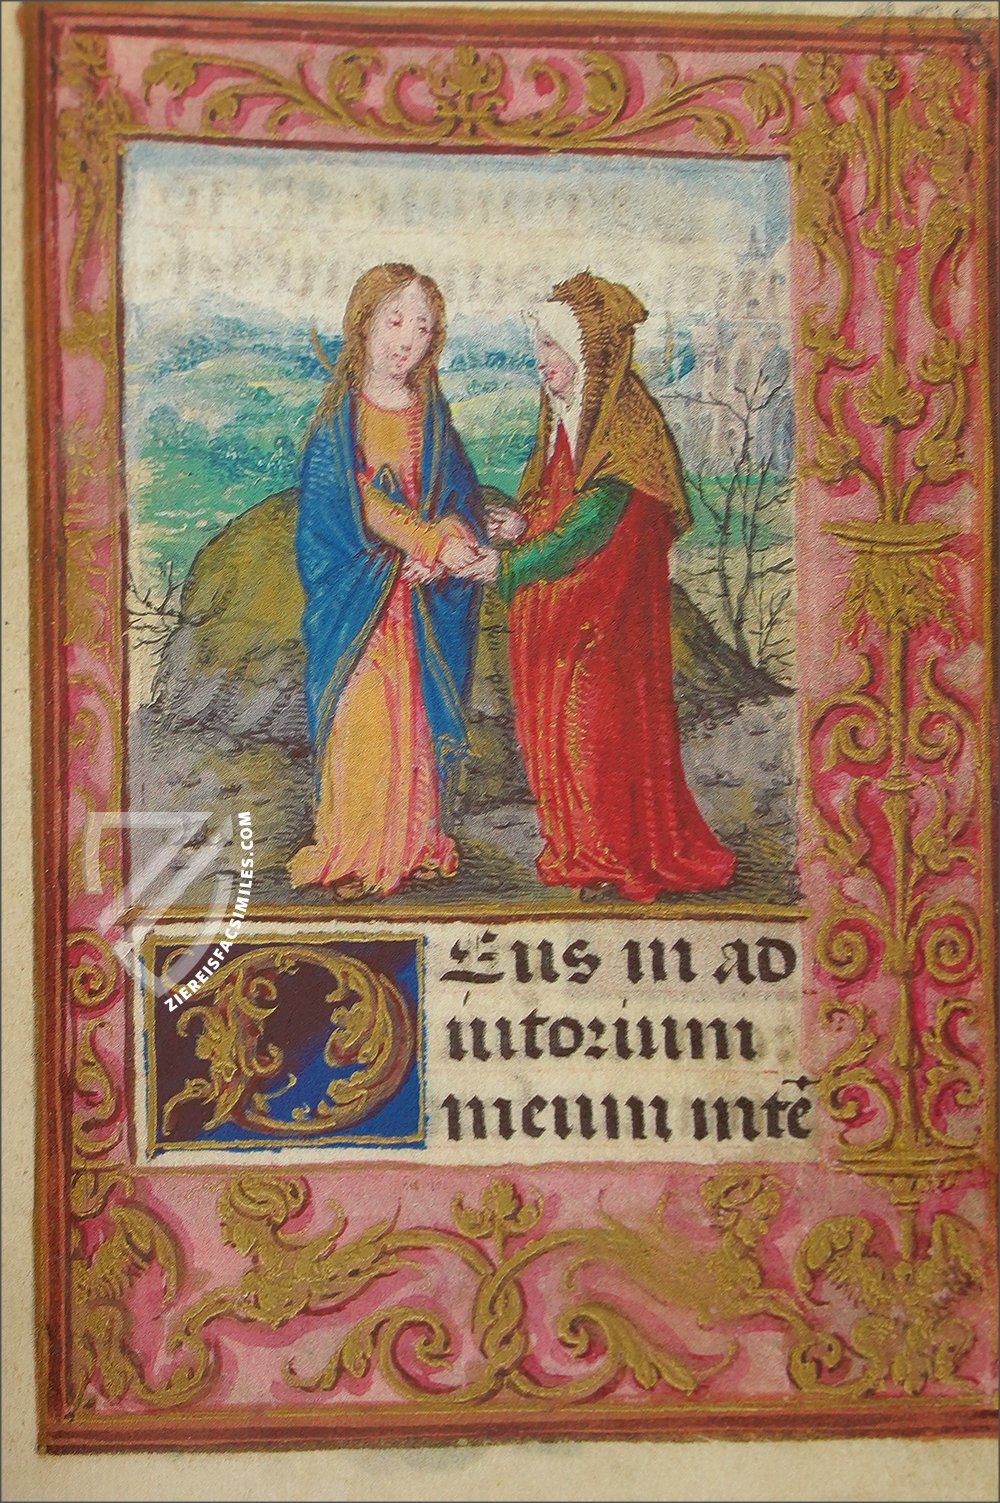 DEus in ad
iutorium
meum intē
ZIEREISFACSIMILES.COM